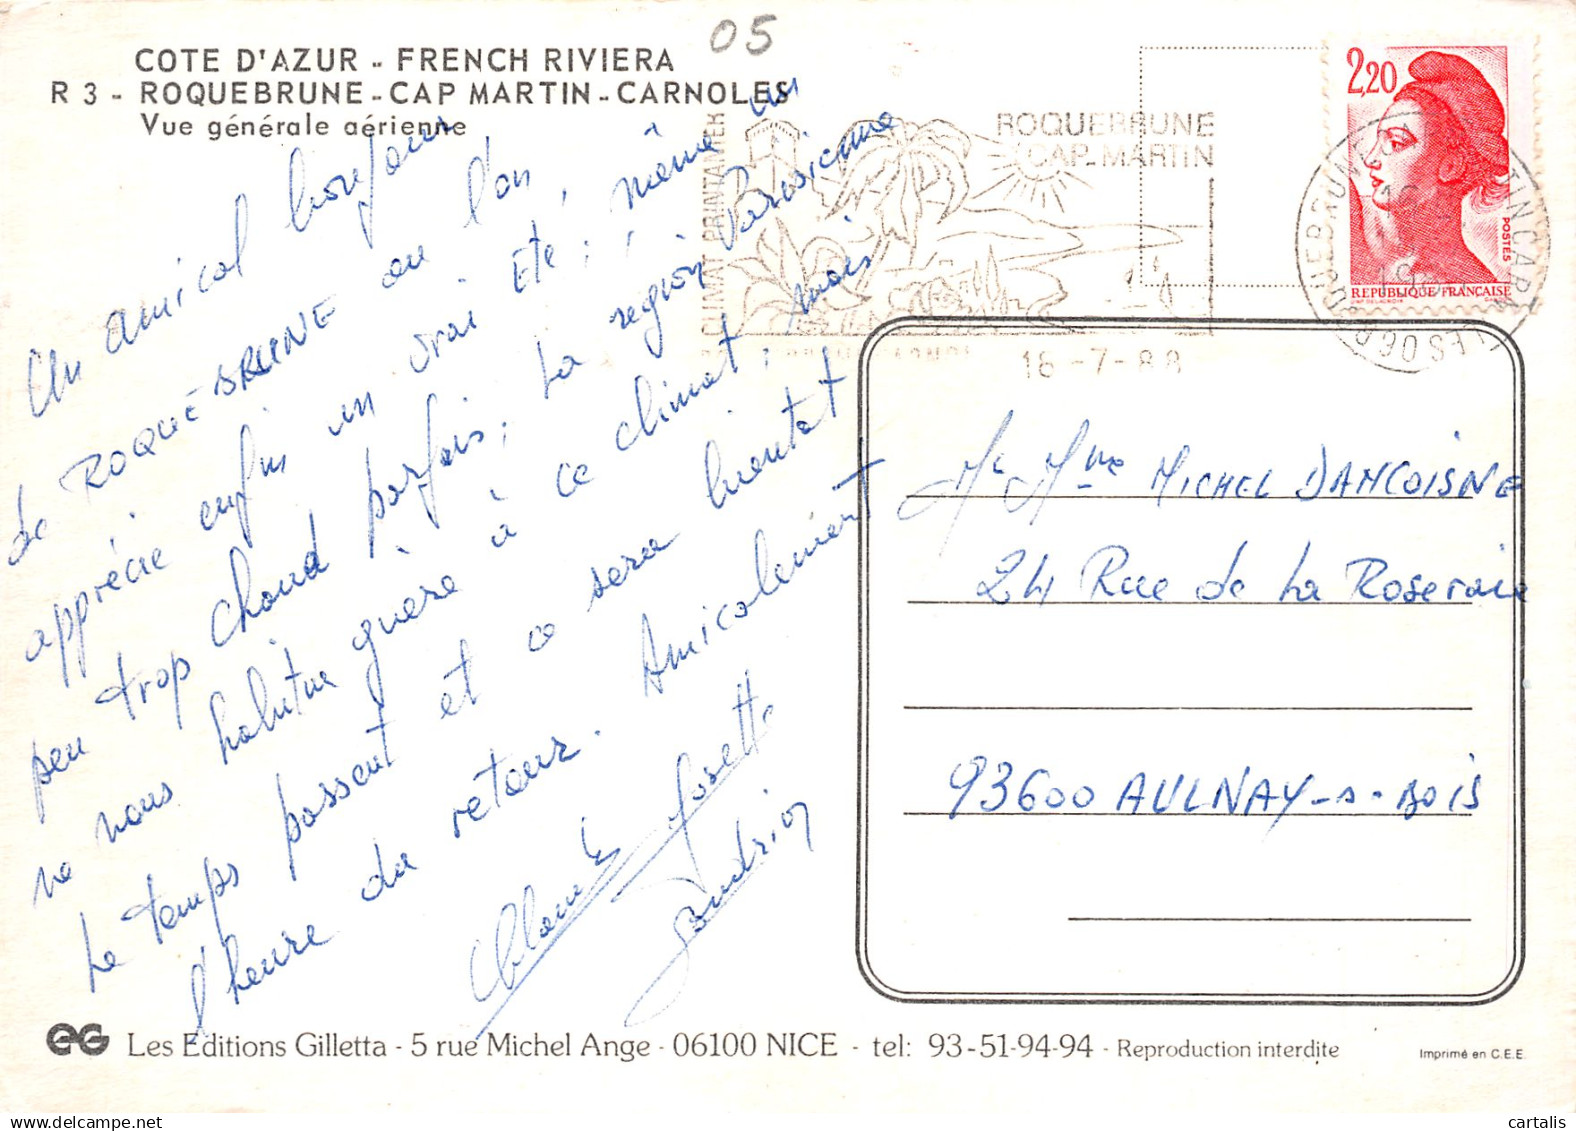 05
COTE D'AZUR - FRENCH RIVIERA
R 3 - ROQUEBRUNE - CAP MARTIN - CARNOLES
Vue générale aérienne
Un amical bonjour
de ROQUEBRUNE où l'on
apprécie enfin un vrai Eté, même un
peu trop chaud parfois, La région Parisienne
ne nous habitue guère à ce climat, mais
Le temps passent et ce sera bientot
l'heure du retour. Amicalement
Josette
CLIMAT PRINTANIER
ROQUEBRUNE
CAP-MARTIN
18-7-88
2,20
POSTES
REPUBLIQUE FRANCAISE
Mr Mme MICHEL DANCOISNE
24 Rue de La Roseraie
93600 AULNAY-s-BOIS
EG Les Editions Gilletta - 5 rue Michel Ange - 06100 NICE - tel: 93-51-94-94 - Reproduction interdite
Imprimé en C.E.E.